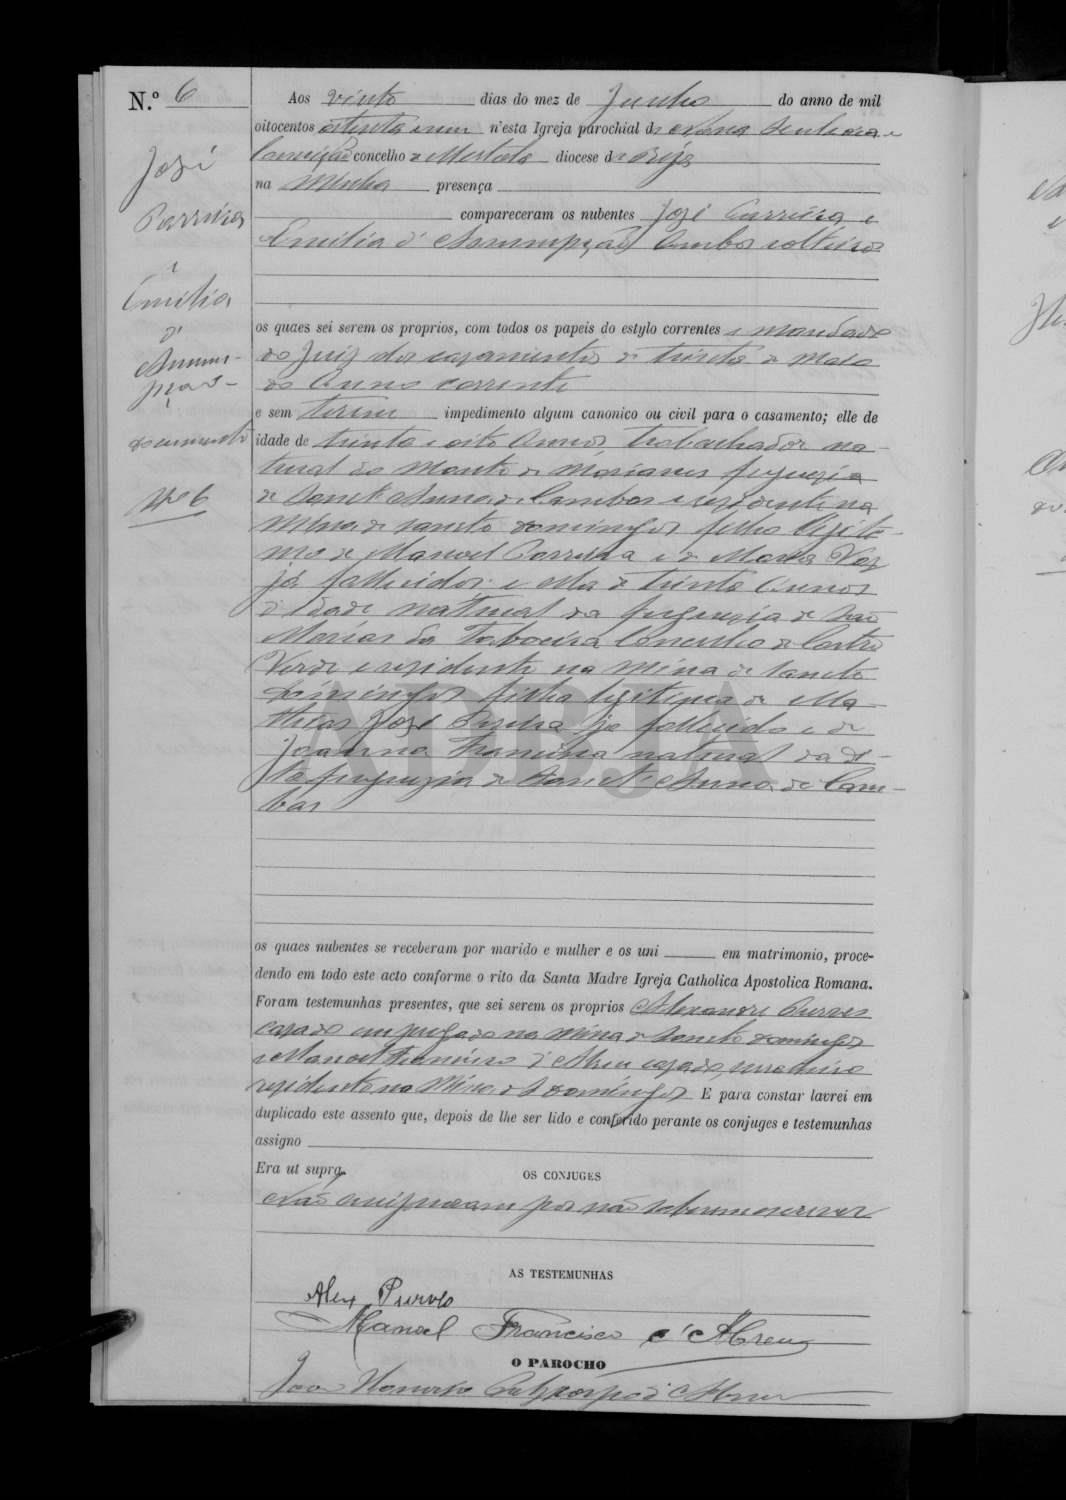 N.º 6
José
Parreira
e
Emilia
d'
Assum-
pção
documento
Nº 6
Aos vinte dias do mez de Junho do anno de mil
oitocentos oitenta e um n'esta Igreja parochial de Nossa Senhora
Conceição concelho de Mertola diocese de Beja
na Minha presença
compareceram os nubentes José Parreira e
Emilia d'Assumpção Ambos solteiros
os quaes sei serem os proprios, com todos os papeis do estylo correntes e mandado
do Juiz dos casamentos de trinta de Maio
do Anno corrente
e sem terem impedimento algum canonico ou civil para o casamento; elle de
idade de trinta e oito Annos, trabalhador na-
tural do Monte de Marianes freguezia
de Sanct'Anna de Cambas e residente na
Mina de Sancto Domingos filho legiti-
mo de Manoel Parreira e de Maria Vaz
já fallecidos e ella de trinta Annos
d'Idade natural da freguezia de São
Marcos da Taboeira Concelho de Castro
Verde e residente na Mina de Sancto
Domingos filha legitima de Ma-
thias José já fallecido e de
Joanna Francisca natural da di-
ta freguezia de Sanct'Anna de Cam-
bas
os quaes nubentes se receberam por marido e mulher e os uni em matrimonio, proce-
dendo em todo este acto conforme o rito da Santa Madre Igreja Catholica Apostolica Romana.
Foram testemunhas presentes, que sei serem os proprios Alexandre Purves
casado empregado na Mina de Sancto Domingos
e Manoel Francisco d'Abreu casado,
residente na Mina de S Domingos E para constar lavrei em
duplicado este assento que, depois de lhe ser lido e conferido perante os conjuges e testemunhas
assigno
Era ut supra.
OS CONJUGES
Não assignaram por não saberem escrever
AS TESTEMUNHAS
Alex Purves
Manoel Francisco d'Abreu
O PAROCHO
João d'Abreu
ADBJA